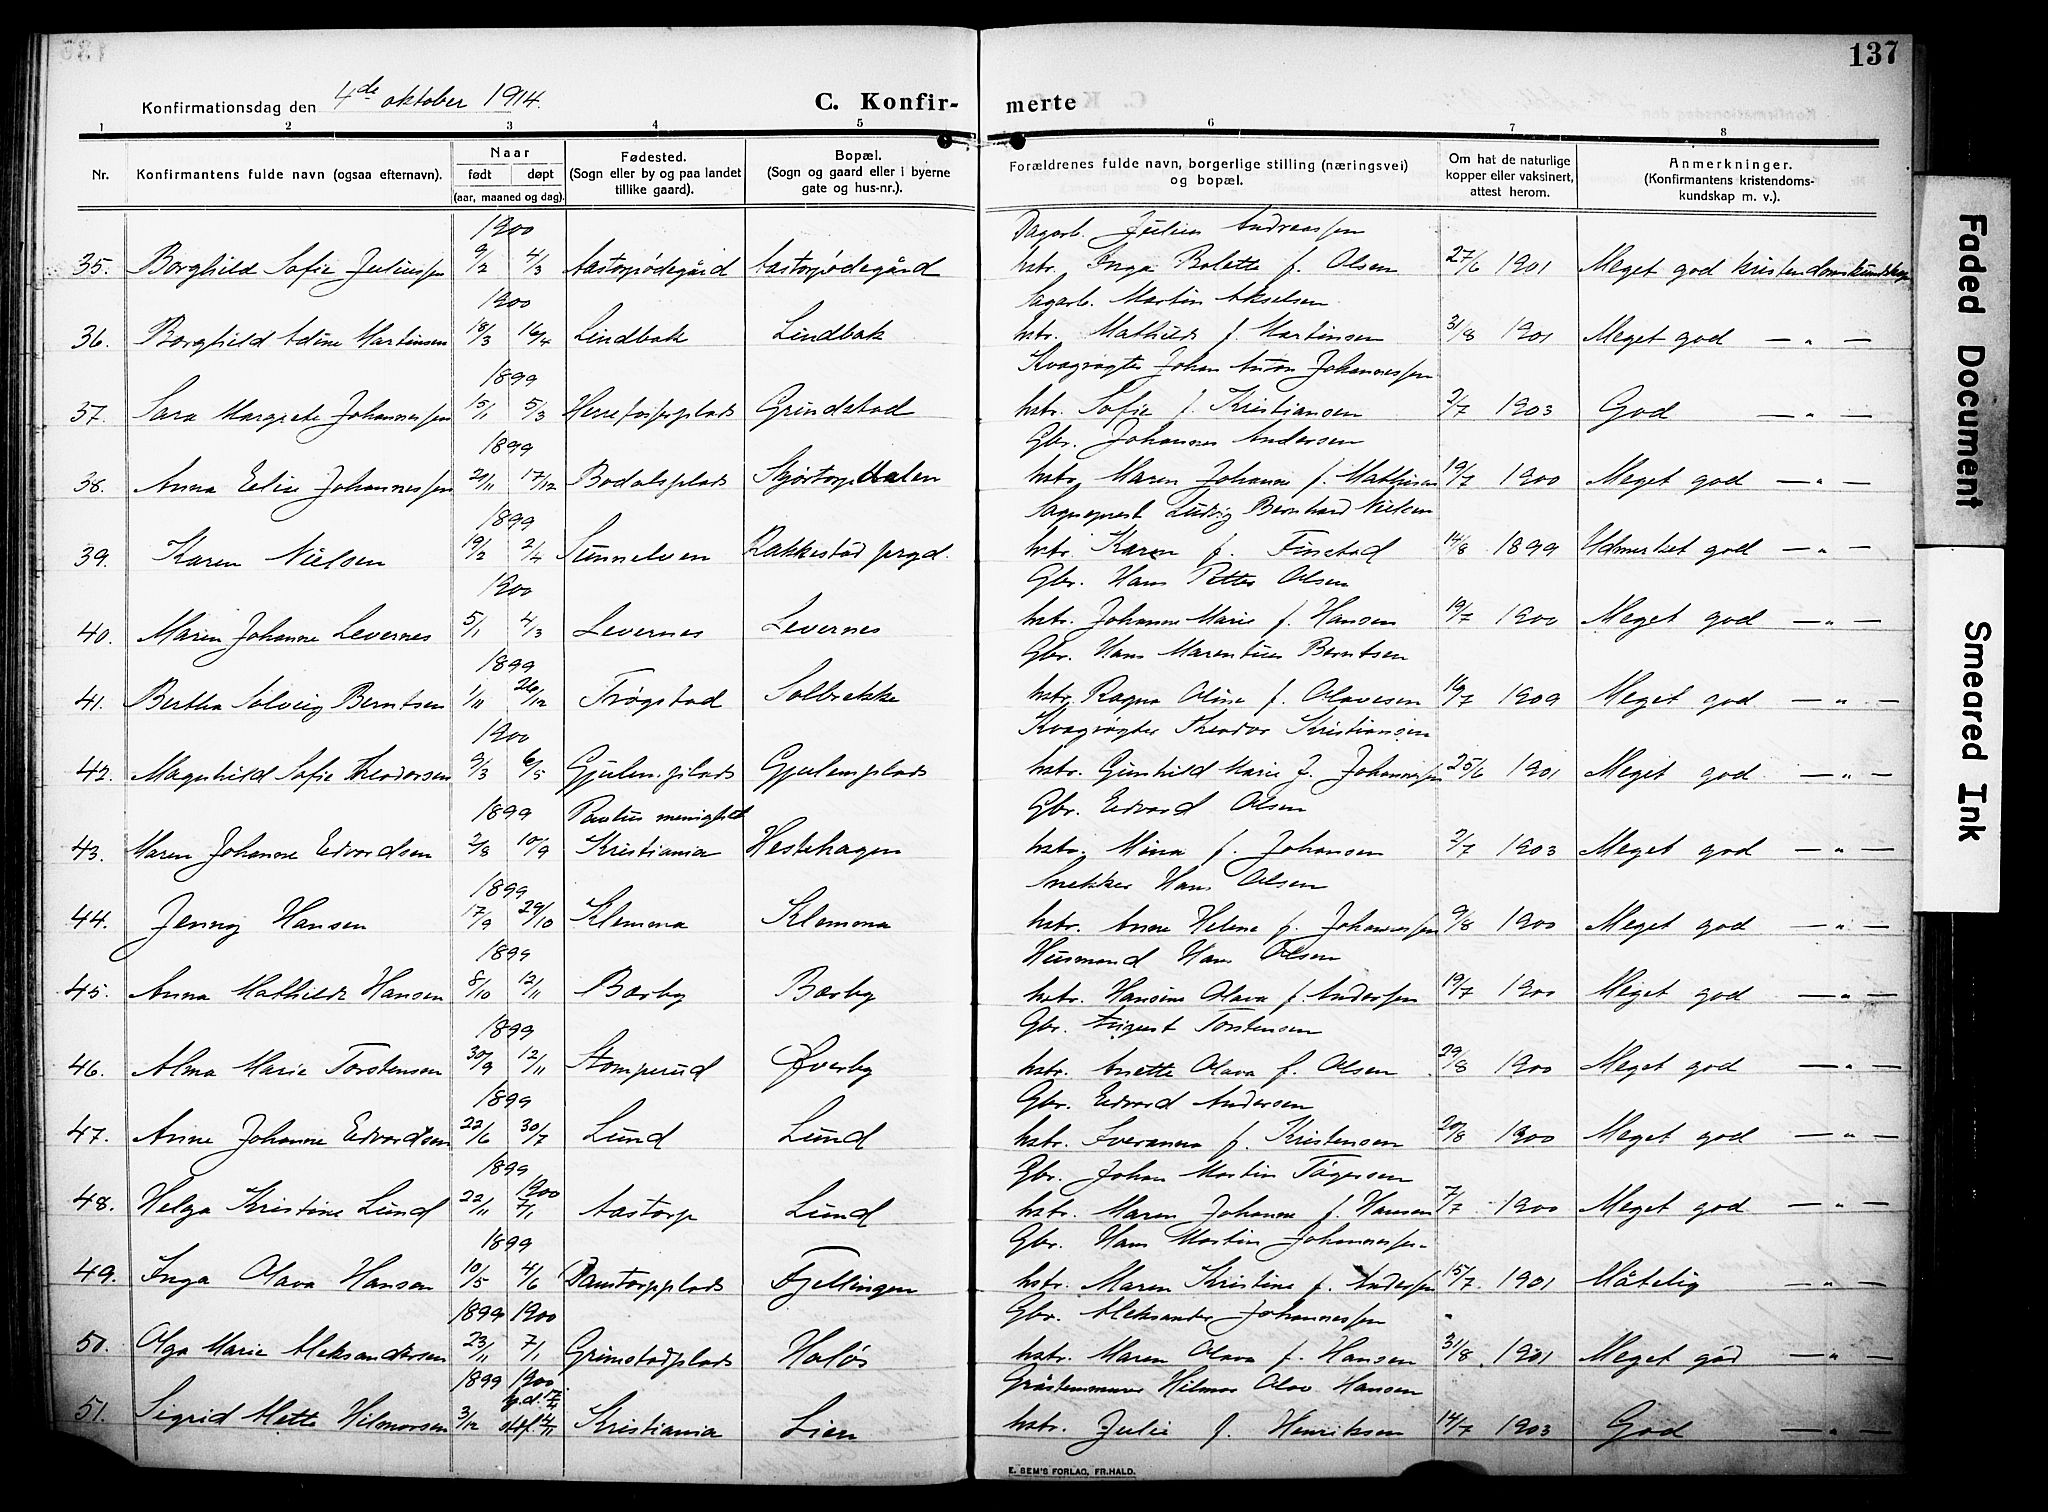 137
Konfirmationsdag den 4de oktober 1914.
C. Konfir-
merte
1 2 3 4 5 6 7 8
Nr.
Konfirmantens fulde navn (ogsaa efternavn).
Naar
født døpt
(aar, maaned og dag).
Fødested.
(Sogn eller by og paa landet
tillike gaard).
Bopæl.
(Sogn og gaard eller i byerne
gate og hus-nr.).
Forældrenes fulde navn, borgerlige stilling (næringsvei)
og bopæl.
Om hat de naturlige
kopper eller vaksinert,
attest herom.
Anmerkninger.
(Konfirmantens kristendoms-
kundskap m. v.).
1900 Dagarb. Julius Andreassen
35. Borghild Sofie Juliussen 9/2 4/3 Aastorpødegård Aastorpødegård hstr. Inga Bolette f. Olsen 27/6 1901 Meget god kristendomskundskap
1900 Sagarb. Martin Akselsen
36. Borghild Adine Martinsen 18/3 16/4 Lindbak Lindbak hstr. Mathilde f. Martinsen 31/8 1901 Meget god — " —
1899 Kvægrøgter Johan Anton Johannessen
37. Sara Margrete Johannessen 15/1 5/3 Grindstad hstr. Sofie f. Kristiansen 2/7 1903 God — " —
1899 Gbr. Johannes Andersen
38. Anna Elise Johannessen 21/11 17/12 Bodalsplads Skjørtorpdalen hstr. Maren Johanne f. Mathisen 19/7 1900 Meget god — " —
1899 Sogneprest Ludvig Bernhard Nielsen
39. Karen Nielsen 19/2 2/4 Sunnelven Rakkestad prgd. hstr. Karen f. Finstad 14/8 1899 Udmerket god — " —
1900 Gbr. Hans Petter Olsen
40. Maren Johanne Levernes 5/1 4/3 Levernes Levernes hstr. Johanne Marie f. Hansen 19/7 1900 Meget god — " —
1899 Gbr. Hans Marentius Berntsen
41. Bertha Solveig Berntsen 1/11 26/12 Trøgstad Solbrekke hstr. Ragna Oline f. Olavesen 16/7 1909 Meget god — " —
1900 Kvægrøgter Theodor Kristiansen
42. Magnhild Sofie Theodorsen 9/3 6/5 Gjulem.plads Gjulemplads hstr. Gunhild Marie f. Johannessen 25/6 1901 Meget god — " —
1899 Paulus menighet Gbr. Edvard Olsen
43. Maren Johanne Edvardsen 2/8 10/9 Kristiania Hestehagen hstr. Mina f. Johansen 2/7 1903 Meget god — " —
1899 Snekker Hans Olsen
44. Jenny Hansen 17/9 29/10 Klemona Klemona hstr. Anne Helene f. Johannessen 9/8 1900 Meget god — " —
1899 Husmand Hans Olsen
45. Anna Mathilde Hansen 8/10 12/11 Børby Børby hstr. Hansine Olava f. Andersen 19/7 1900 Meget god — " —
1899 Gbr. August Torstensen
46. Alma Marie Torstensen 30/9 12/11 Stomperud Øverby hstr. Anette Olava f. Olsen 29/8 1900 Meget god — " —
1899 Gbr. Edvard Andersen
47. Anne Johanne Edvardsen 22/6 30/7 Lund Lund hstr. Sveranna f. Kristensen 20/8 1900 Meget god — " —
1899 1900 Gbr. Johan Martin Tøgersen
48. Helga Kristine Lund 22/11 7/1 Aastorp Lund hstr. Maren Johanne f. Hansen 7/7 1900 Meget god — " —
1899 Gbr. Hans Martin Johannessen
49. Inga Olava Hansen 10/5 4/6 Damtorpplads Fjellingen hstr. Maren Kristine f. Andersen 15/7 1901 Måtelig — " —
1899 1900 Gbr. Aleksander Johannessen
50. Olga Marie Aleksandersen 23/11 7/1 Grimstadplads Holøs hstr. Maren Olava f. Hansen 31/8 1901 Meget god — " —
1899 1900 Gråstensmurer Hilmar Olav Hansen
51. Sigrid Mette Hilmarsen 3/12 Kristiania Lien hstr. Julie f. Henriksen 14/7 1903 God — " —
E. SEM'S FORLAG, FR.HALD.
Faded Document
Smeared Ink